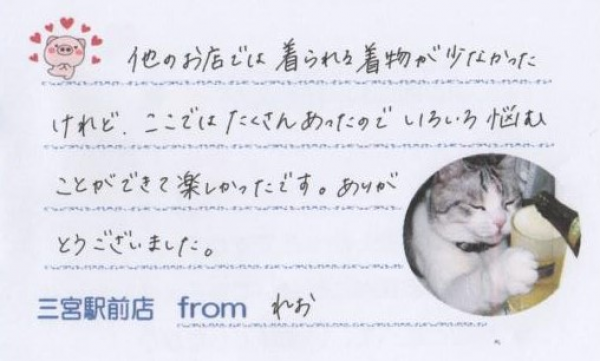 他のお店では着られる着物が少なかった
けれど、ここではたくさんあったのでいろいろ悩む
ことができて楽しかったです。ありが
とうございました。
三宮駅前店 from れお